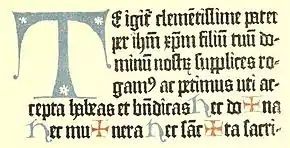 TE igit᷑ clemẽtissime pater
per ihm̃ xp̃m filiũ tuũ do-
minũ nostꝝ supplices ro-
gamꝰ ac petimus uti ac-
cepta habeas et bñdicas hec do✠na
hec mu✠nera hec sãc✠ta sacri-